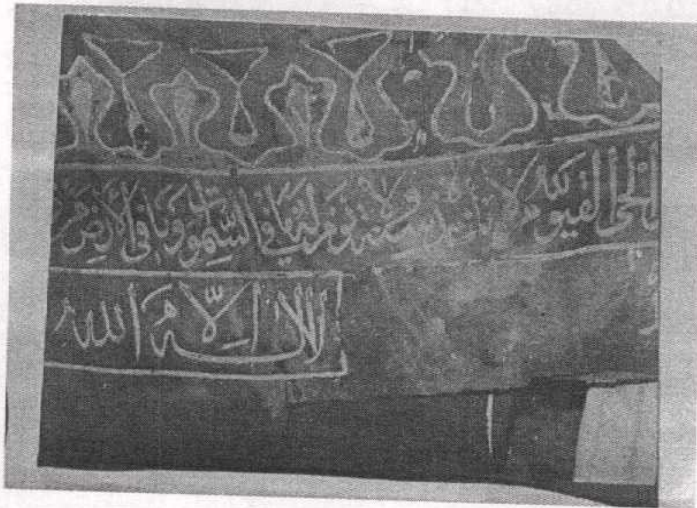 الحي القيوم لا تأخذه سنة ولا نوم له ما في السموات وما في الأرض
لا إله إلا الله